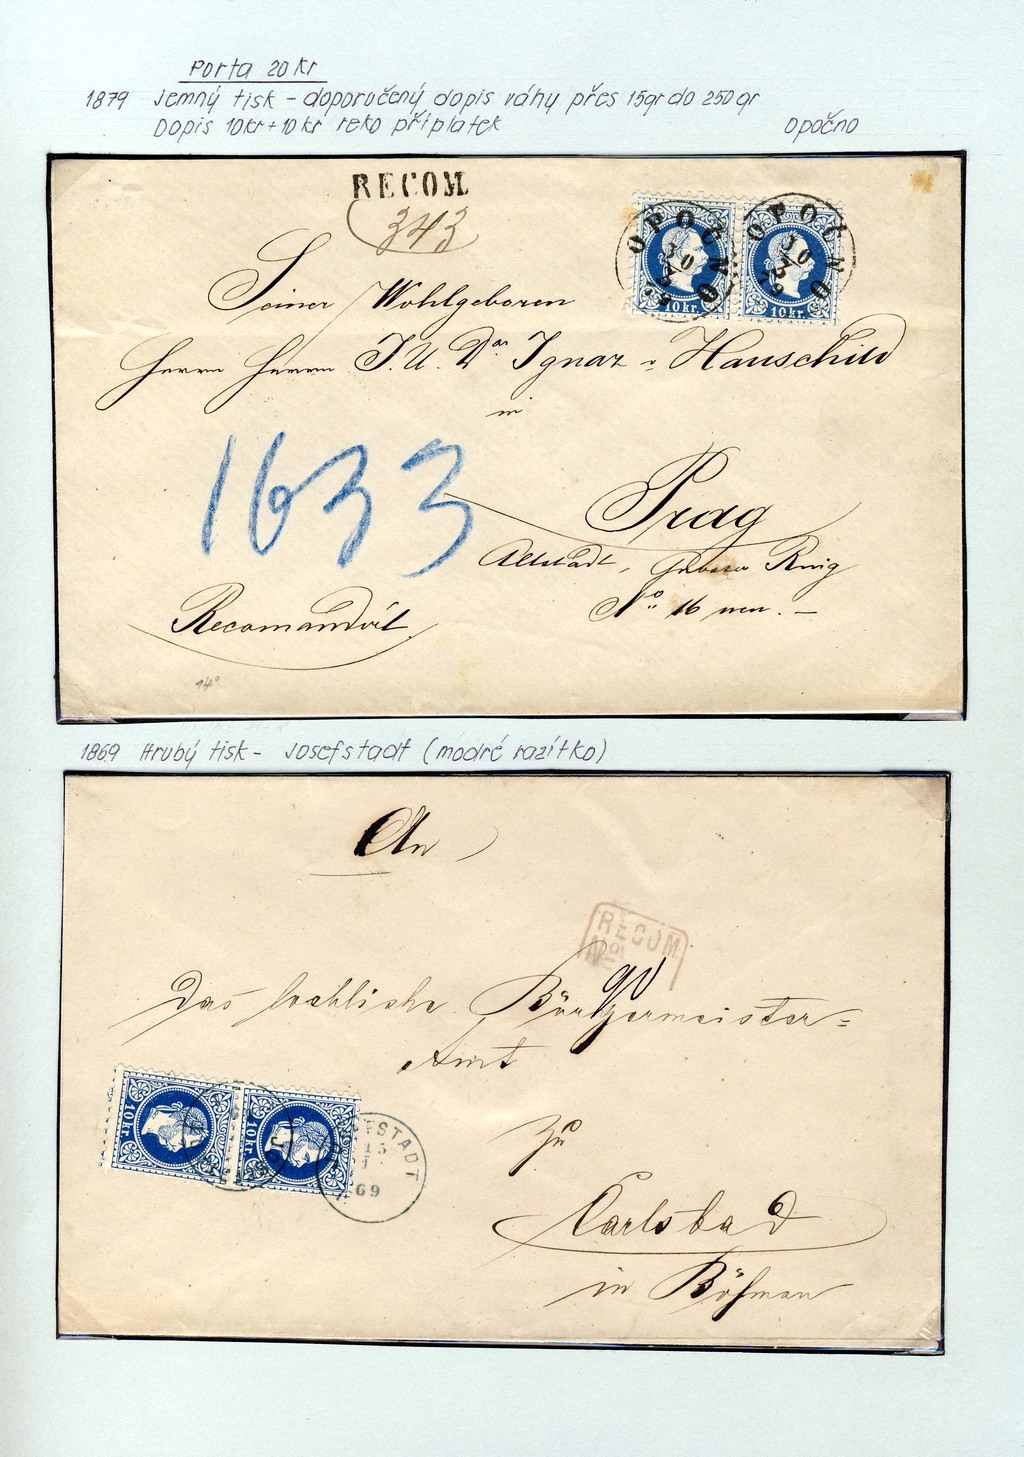 Porta 20 kr
1879 Jemný tisk - doporučený dopis váhy přes 15gr do 250 gr
Dopis 10kr + 10 kr reko příplatek Opočno
RECOM
343
OPOČNO
OPOČNO
10 kr.
10 kr.
Seiner Wohlgeboren
Herrn Herrn J. U. Dor Ignaz v Hauschild
in
1633
Prag
Altstadt, Ring
No 16 neu. -
Recomandirt
14°
1869 Hrubý tisk - Josefstadt (modré razítko)
An
RECOM
No
90
Das loebliche Bürgermeister=
Amt
10 kr.
10 kr.
JOSEFSTADT
69
zu
Carlsbad
in Böhmen